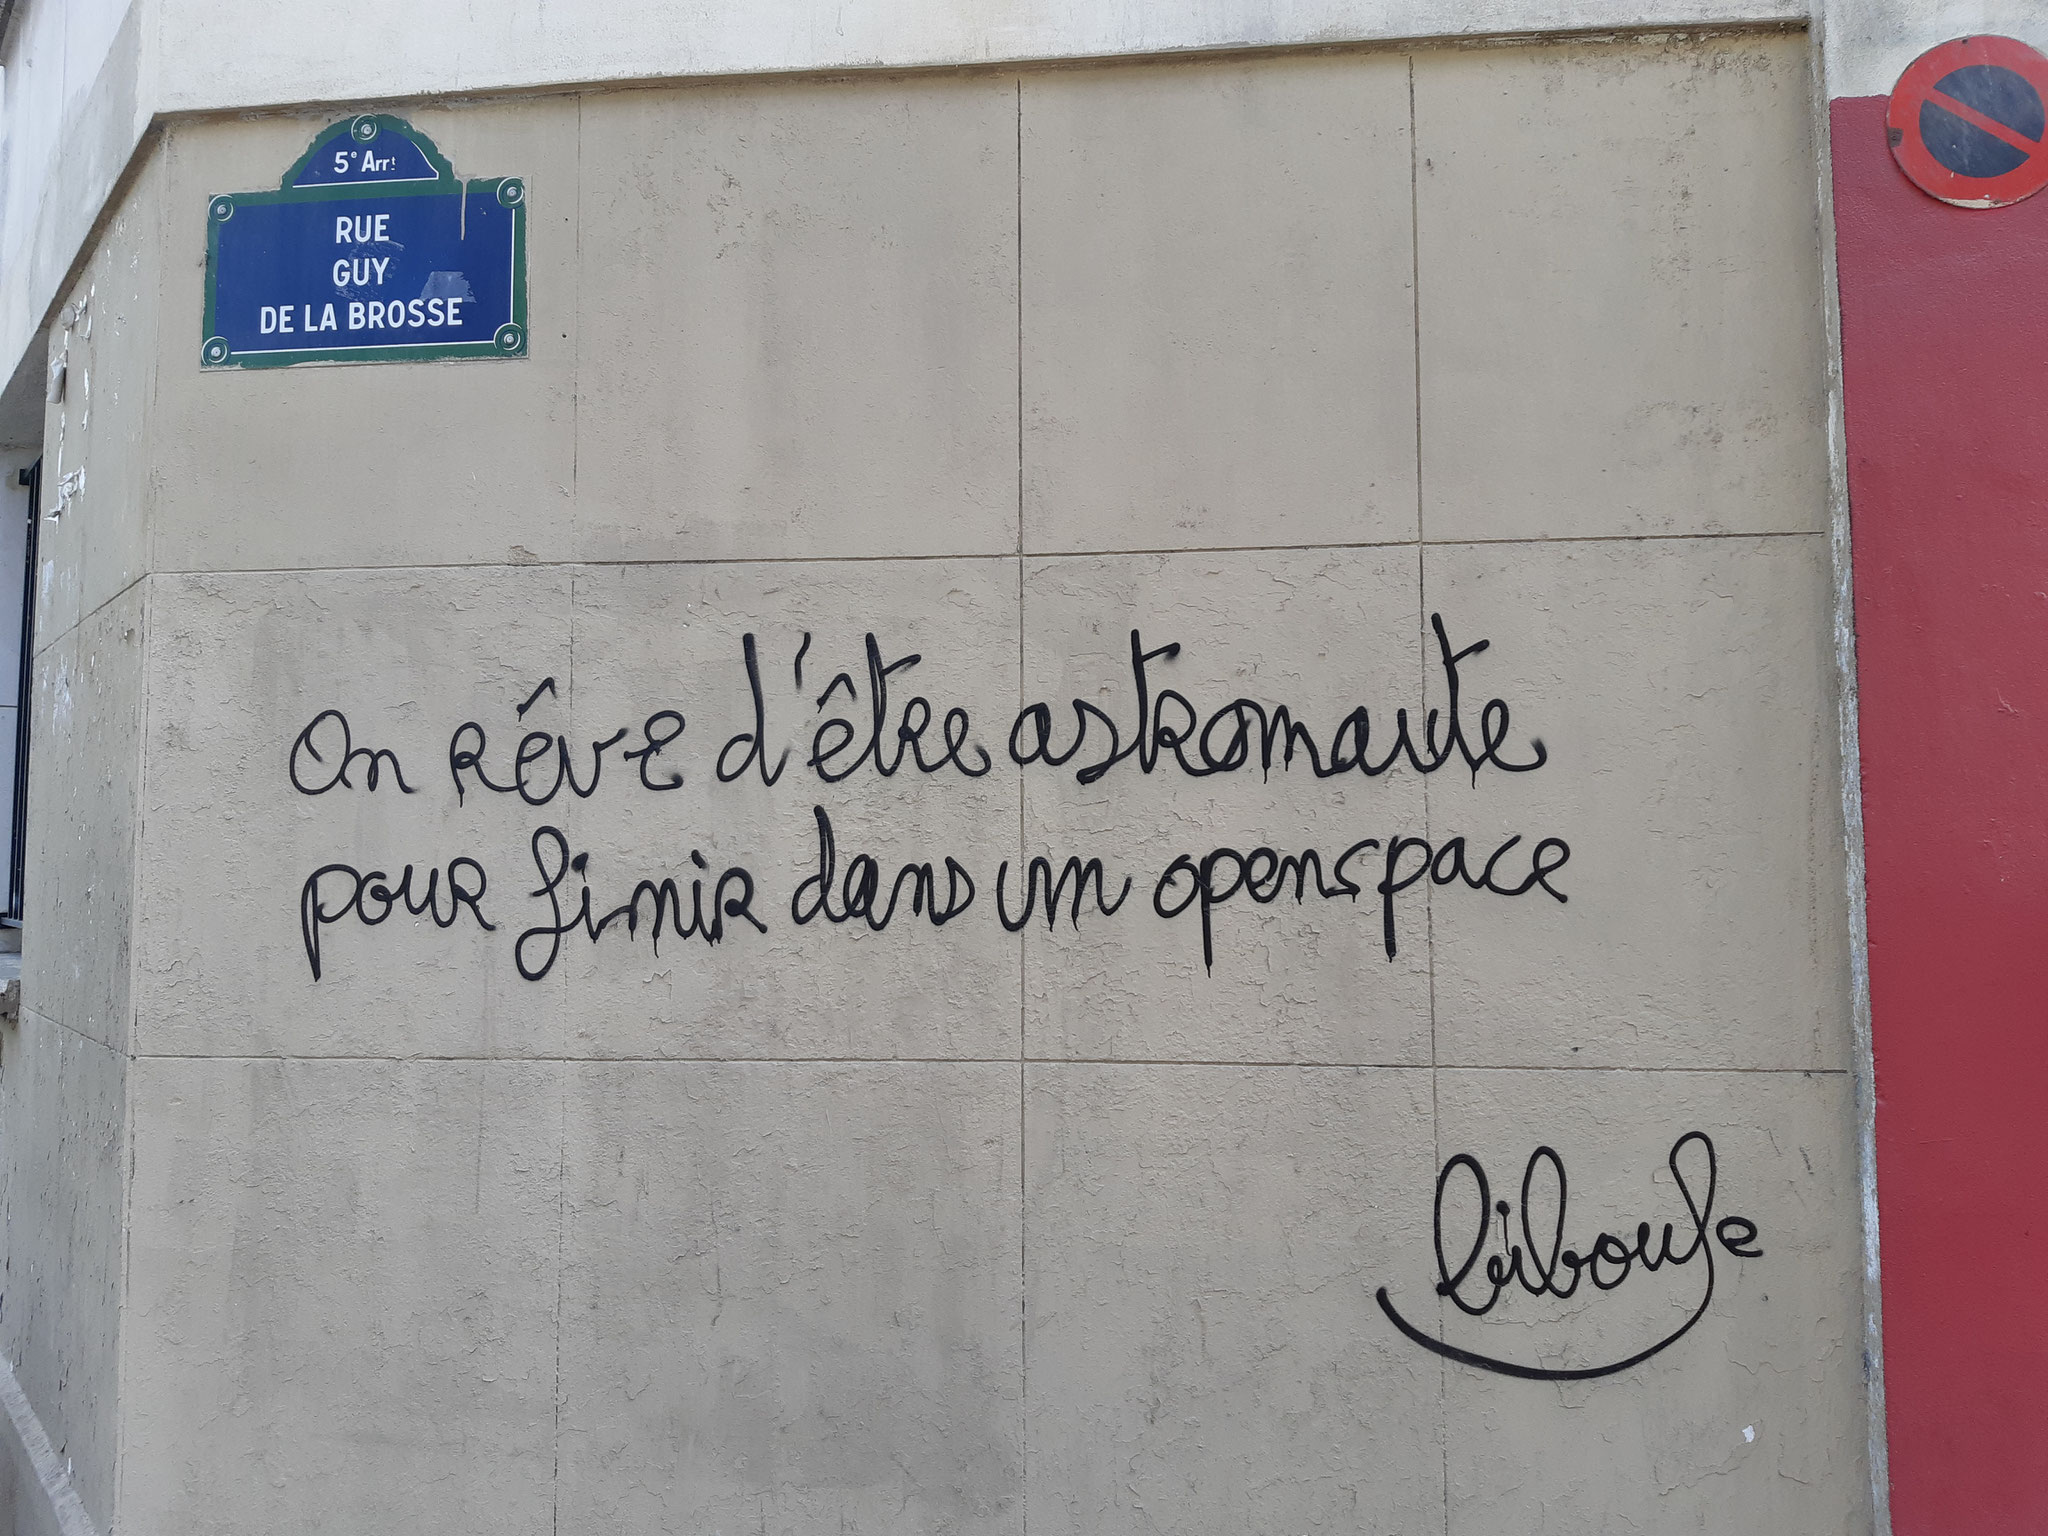 5e Arrt
RUE
GUY
DE LA BROSSE
On rêve d'être astronaute
pour finir dans un openspace